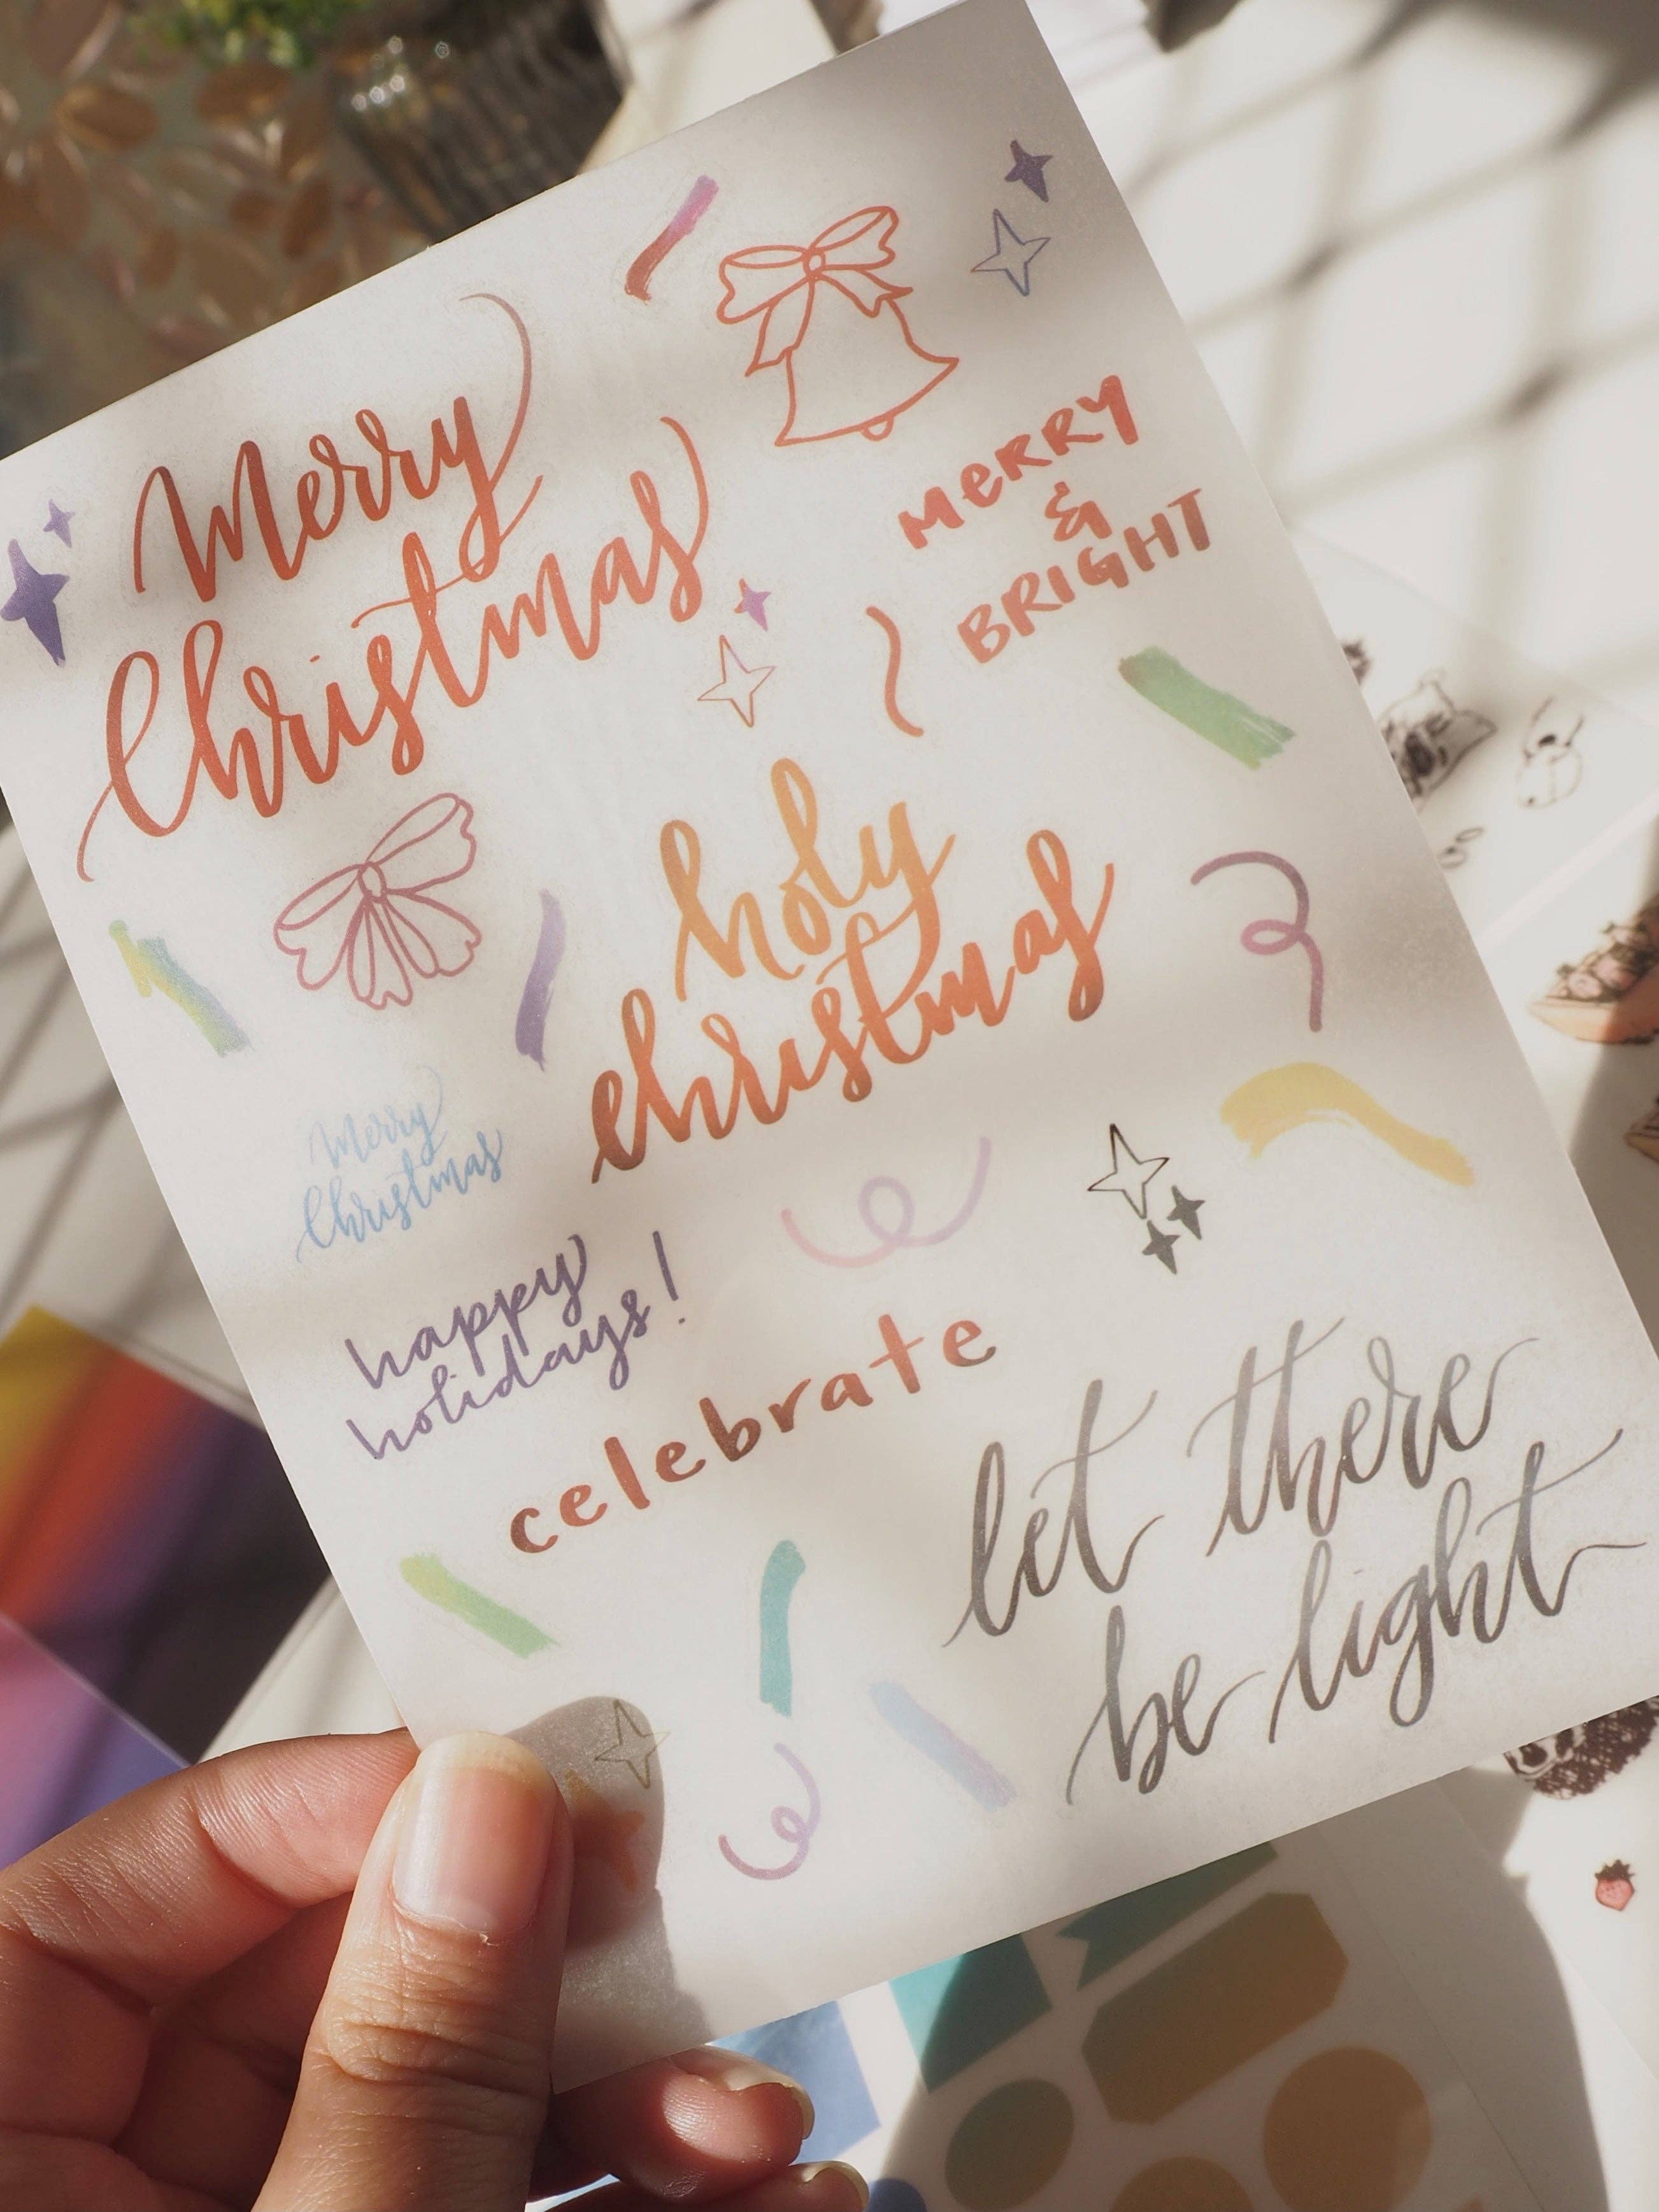 Merry
Christmas
MERRY
&
BRIGHT
holy
christmas
Merry
Christmas
happy
holidays!
celebrate
let there
be light